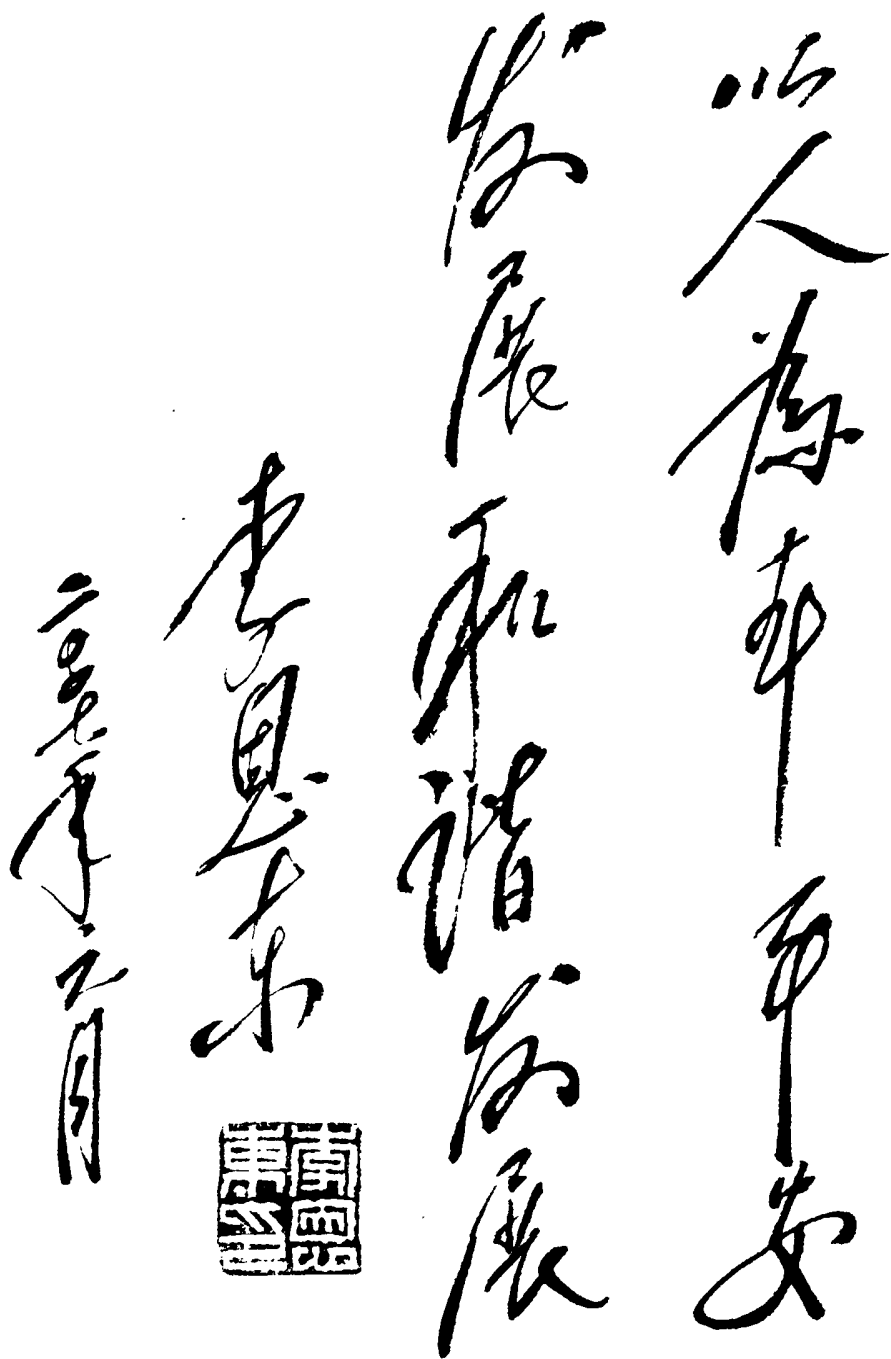 以人為本 平安
发展 和谐发展
李恩东
二〇〇七年元月
李恩東印